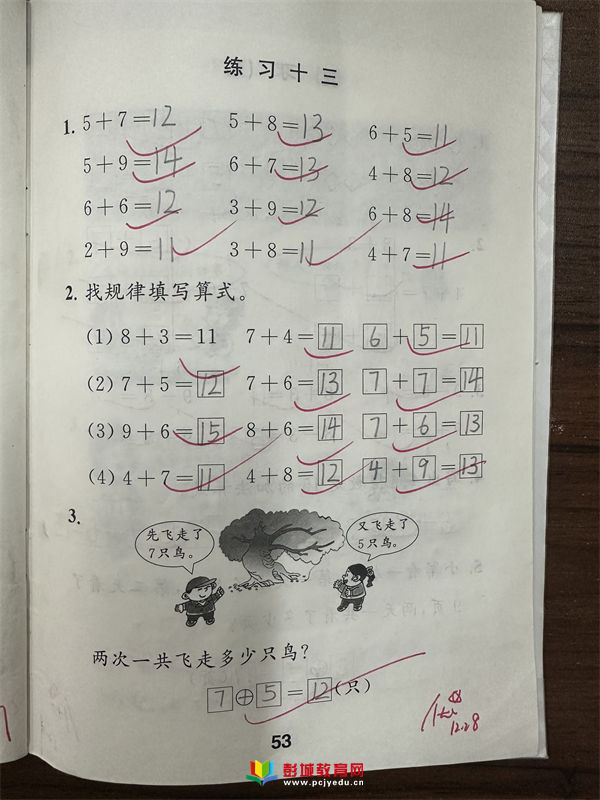 练习十三
1. 5+7=12 5+8=13 6+5=11
5+9=14 6+7=13 4+8=12
6+6=12 3+9=12 6+8=14
2+9=11 3+8=11 4+7=11
2. 找规律填写算式。
(1) 8+3=11 7+4=11 6+5=11
(2) 7+5=12 7+6=13 7+7=14
(3) 9+6=15 8+6=14 7+6=13
(4) 4+7=11 4+8=12 4+9=13
3.
先飞走了
7只鸟。
又飞走了
5只鸟。
两次一共飞走多少只鸟?
7+5=12(只)
12.28
53
彭城教育网
www.pcjyedu.cn